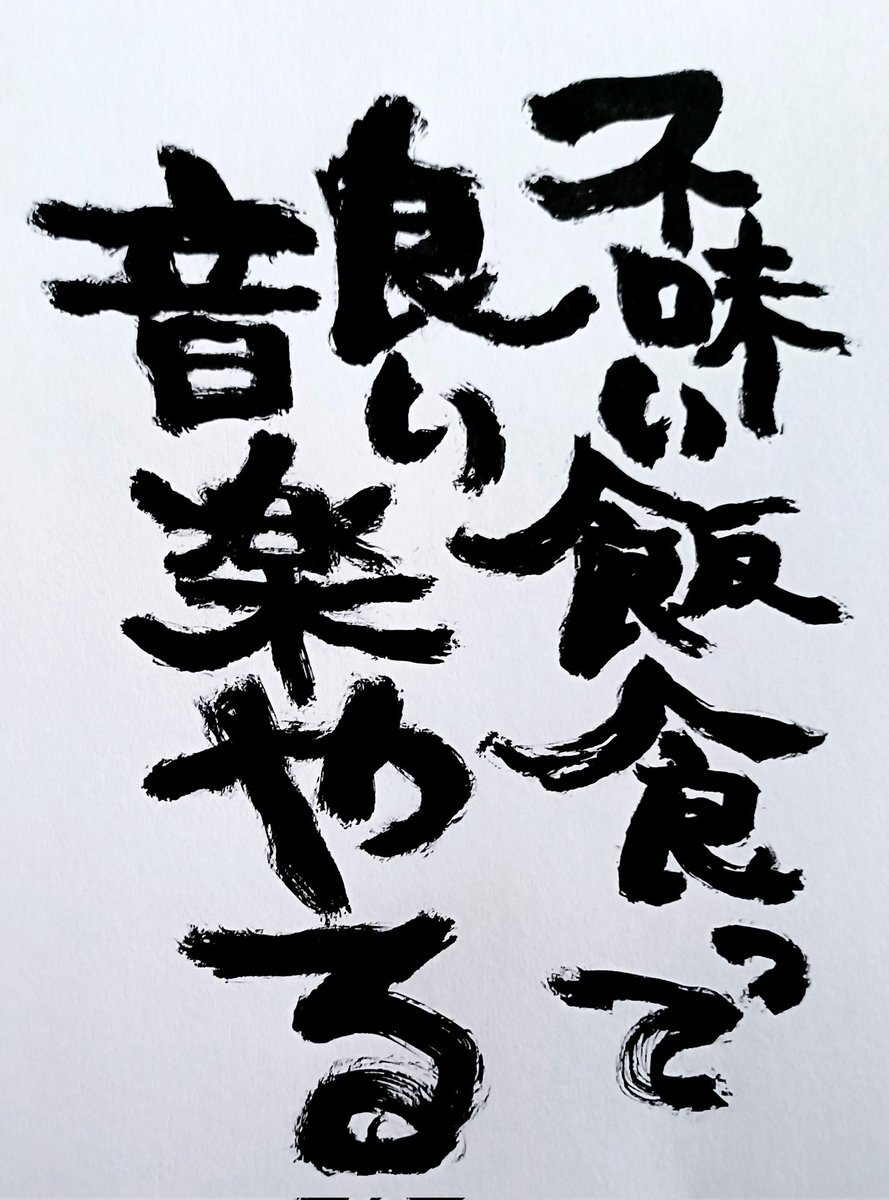 不味い飯食って
良い音楽やる